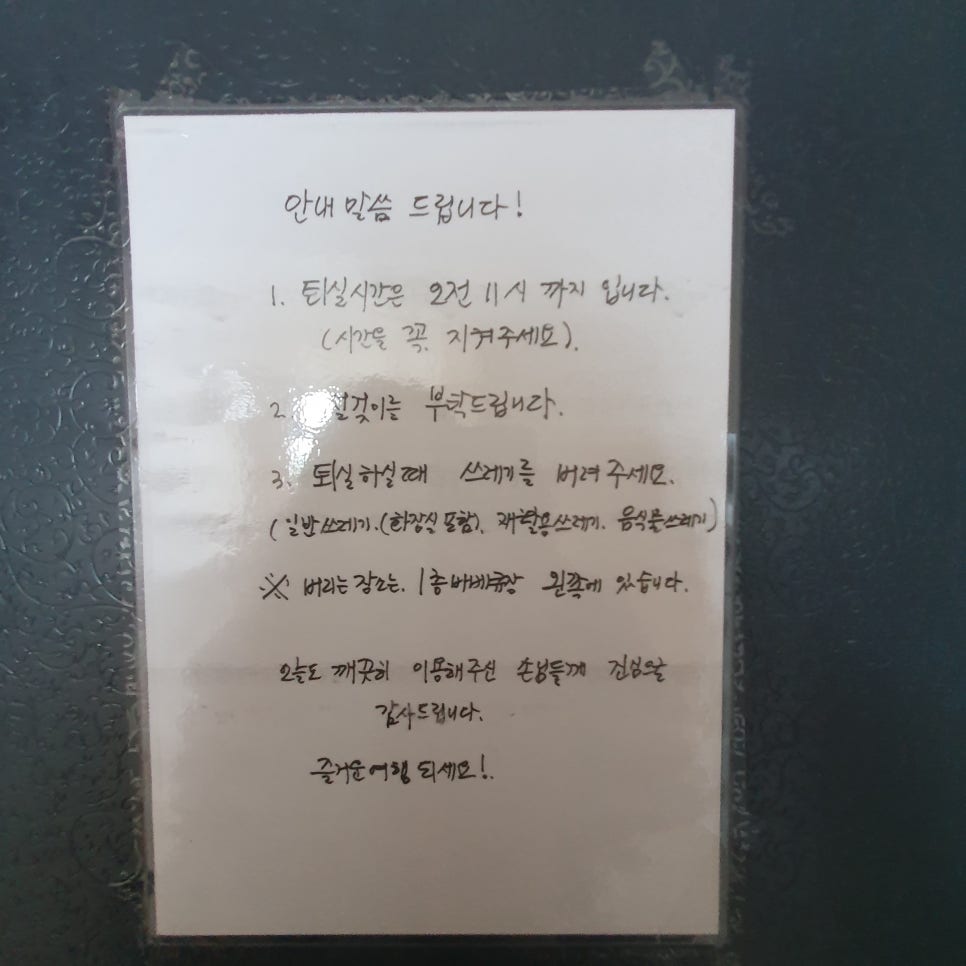 안내 말씀 드립니다!
1. 퇴실시간은 오전 11시 까지 입니다.
(시간을 꼭 지켜주세요).
2. 설겆이를 부탁드립니다.
3. 퇴실하실때 쓰레기를 버려 주세요.
(일반쓰레기.(화장실 포함). 재활용쓰레기. 음식물쓰레기)
※ 버리는 장소는. 1층 바베큐장 왼쪽에 있습니다.
오늘도 깨끗히 이용해주신 손님들께 진심으로
감사드립니다.
즐거운 여행 되세요!.